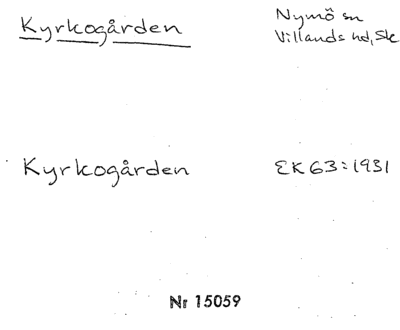 Kyrkogården
Nymö sn
Villands hd, Sk
Kyrkogården
EK63:1931
Nr 15059